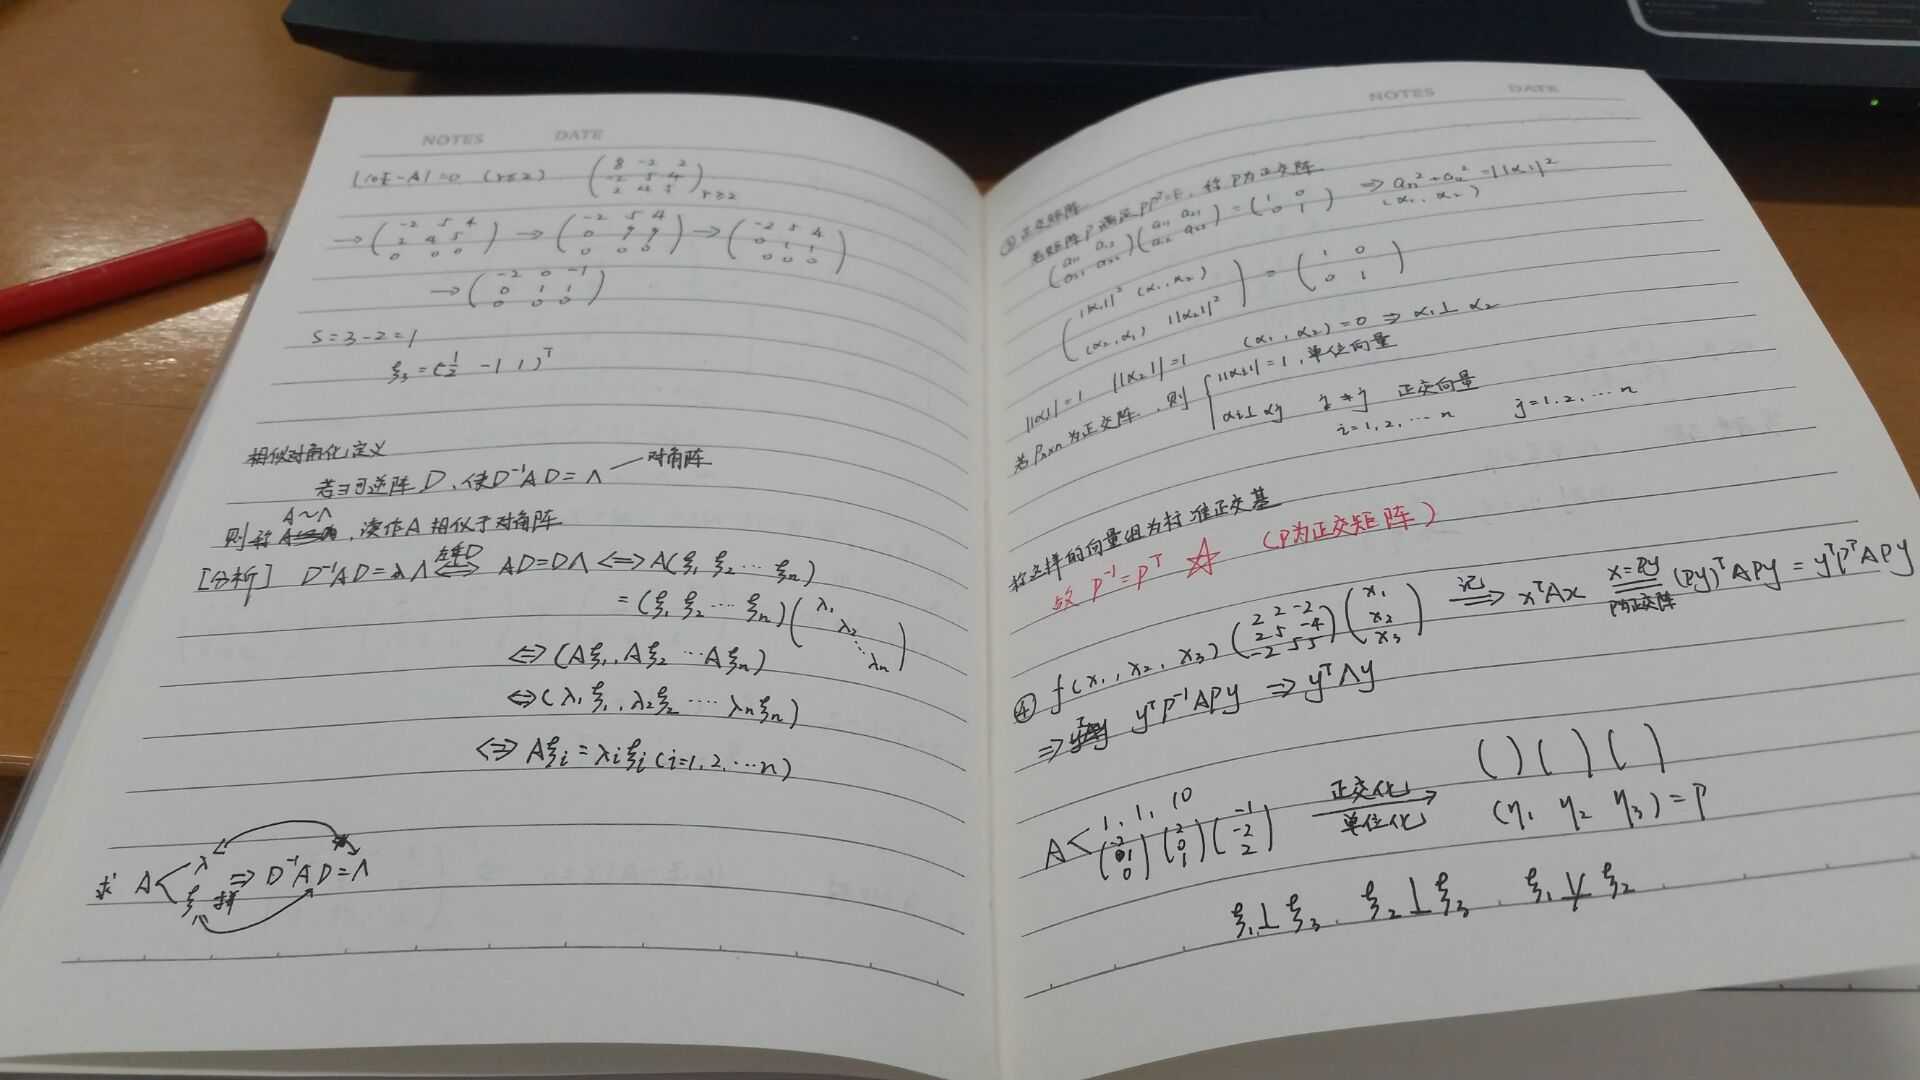 NOTES DATE
|10E-A|=0 (r≤2) (8 -2 2
-2 5 4
2 4 5) r≥2
→ (-2 5 4
2 4 5
0 0 0) → (-2 5 4
0 9 9
0 0 0) → (-2 5 4
0 1 1
0 0 0)
→ (-2 0 -1
0 1 1
0 0 0)
S=3-2=1
ξ₃=(-½ -1 1)ᵀ
相似对角化定义
若∃可逆阵D,使D⁻¹AD=Λ — 对角阵
A~Λ
则称,读作A相似于对角阵
[分析] D⁻¹AD=λΛ ⇔ AD=DΛ ⇔ A(ξ₁ ξ₂ … ξn)
=(ξ₁ ξ₂ … ξn)(λ₁
λ₂
⋱
λn)
⇔(Aξ₁,Aξ₂ … Aξn)
⇔(λ₁ξ₁,λ₂ξ₂ … λnξn)
⇔ Aξi=λiξi(i=1,2,…n)
求 A< λ
ξ 拼 ⇒ D⁻¹AD=Λ
NOTES DATE
③正交矩阵
若矩阵P满足PPᵀ=E,称P为正交阵
(a₁₁ a₁₂
a₂₁ a₂₂)(a₁₁ a₂₁
a₁₂ a₂₂)=(1 0
0 1) ⇒
(α₁,α₂)
(||α₁||² (α₁,α₂)
(α₂,α₁) ||α₂||²) = (1 0
0 1)
||α₁||=1 ||α₂||=1 (α₁,α₂)=0 ⇒ α₁⊥α₂
若Pn×n为正交阵,则{||αi||=1,单位向量
αi⊥αj i≠j 正交向量
i=1,2,…n j=1,2,…n
称这样的向量组为标准正交基
故P⁻¹=Pᵀ ☆ (P为正交矩阵)
④ f(x₁,x₂,x₃)(2 2 -2
2 5 -4
-2 5 5)(x₁
x₂
x₃) 记⇒ xᵀAx x=Py
P为正交阵 (Py)ᵀAPy=yᵀPᵀAPy
⇒ yᵀP⁻¹APy ⇒ yᵀΛy
A< 1, 1, 10
(-2
1
0)(2
0
1)(-1
-2
2) 正交化
单位化 → ( )( )( )
(η₁ η₂ η₃)=P
ξ₁⊥ξ₃, ξ₂⊥ξ₃, ξ₁⊥̸ξ₂